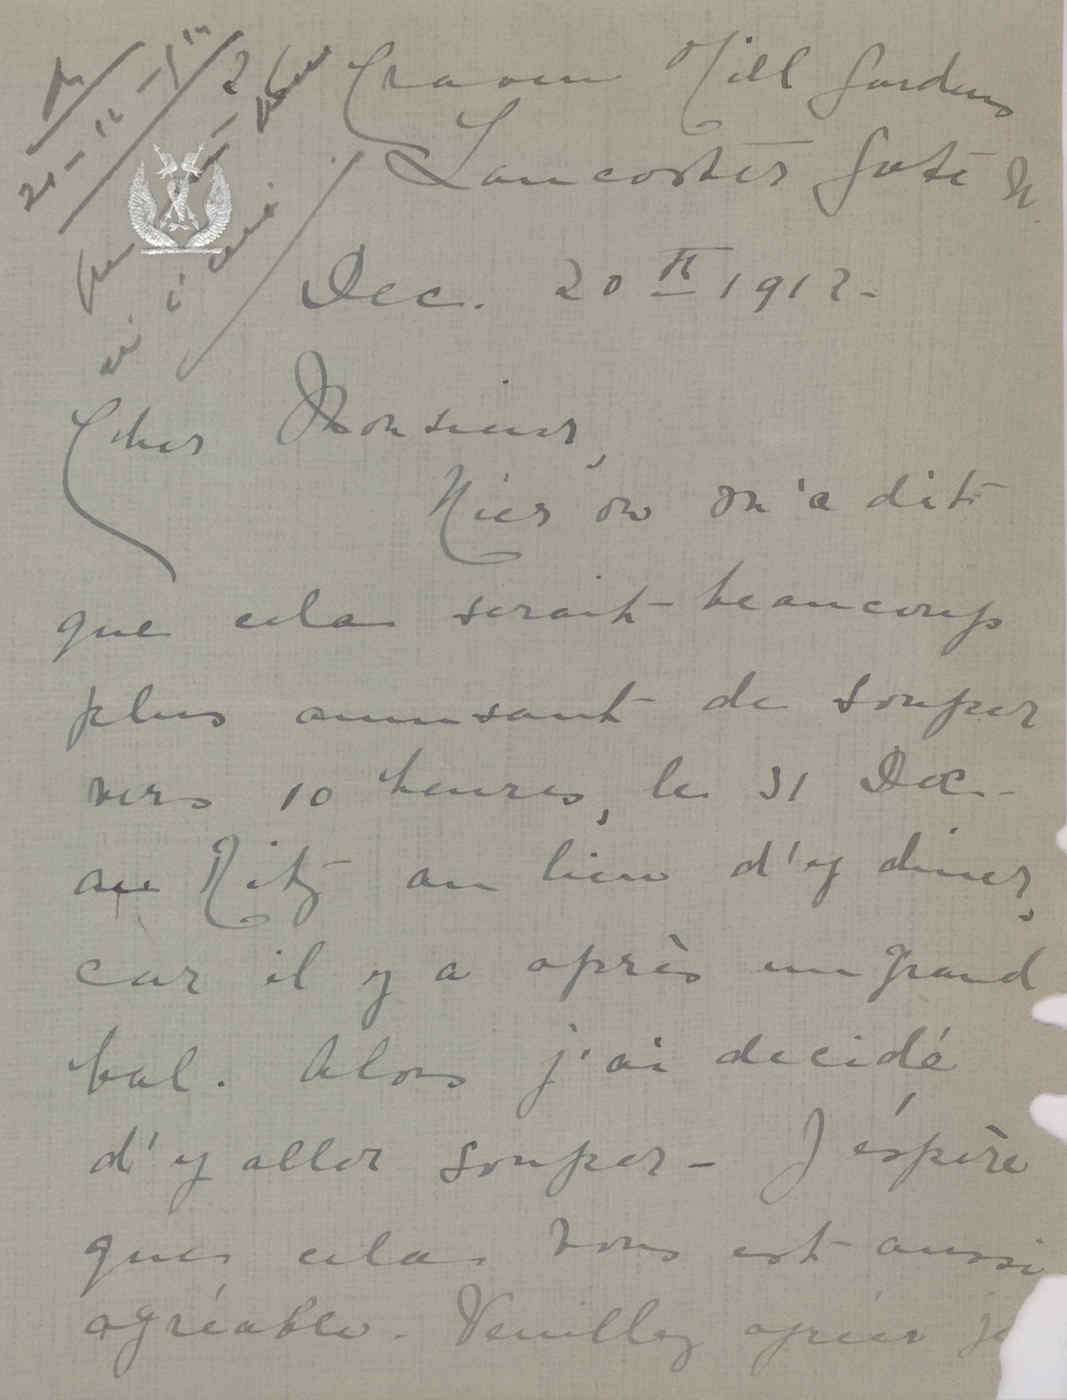 26 Craven Hill Gardens
Lancaster Gate W.
Dec. 20th 1912-
Cher Monsieur,
Hier on m'a dit
que cela serait beaucoup
plus amusant de souper
vers 10 heures, le 31 Dec.
au Ritz au lieu d'y diner,
car il y a après un grand
bal. Alors j'ai decidé
d'y aller souper - J'éspère
que cela vous est aussi
agréable. Veuillez agréer je